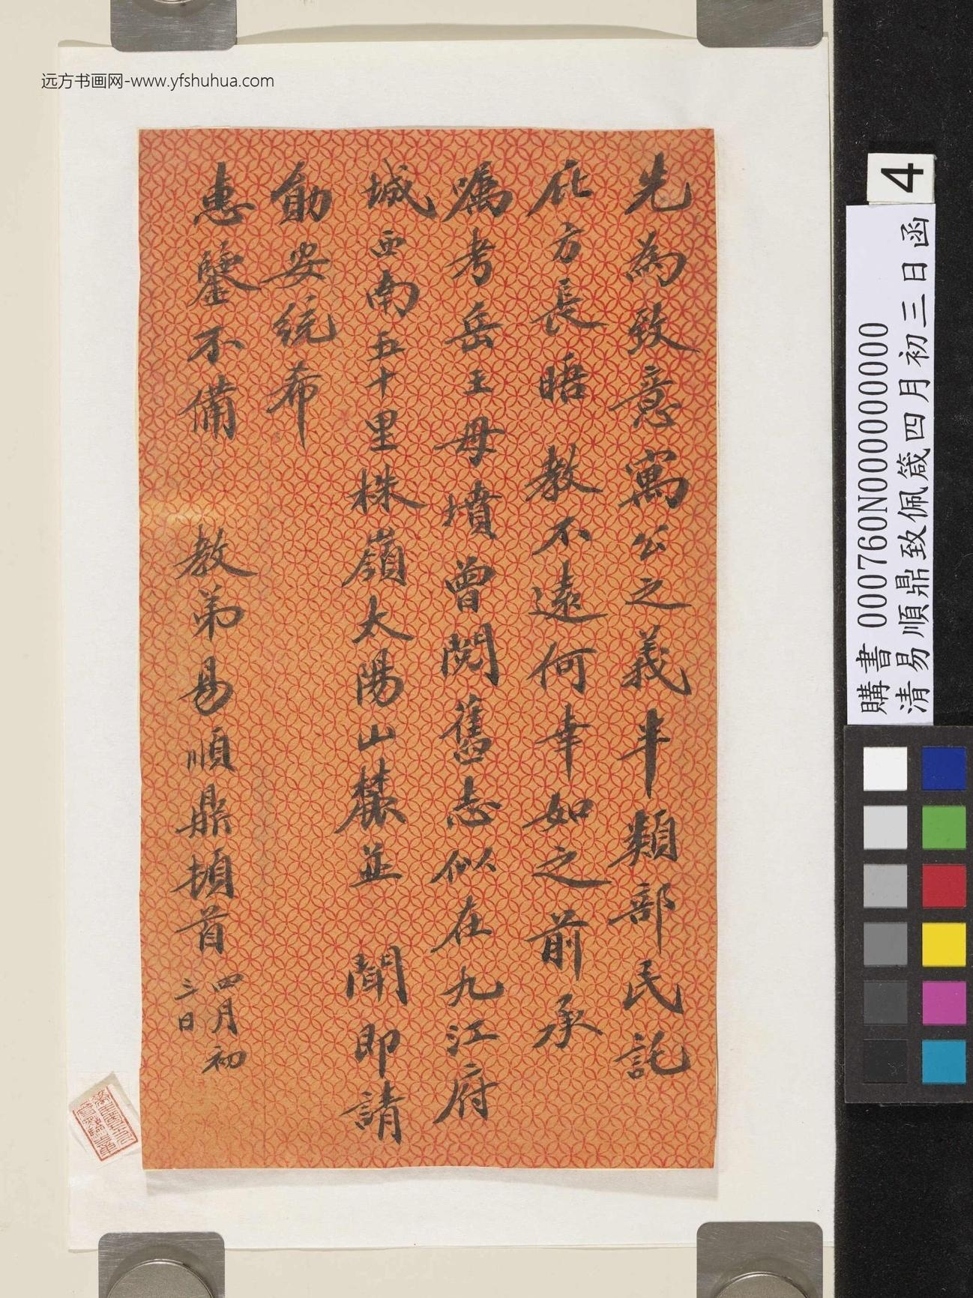 远方书画网-www.yfshuhua.com
先為致意寓公之義半類部民託
庇方長晤教不遠何幸如之前承
囑考岳王母墳曾閱舊志似在九江府
城西南五十里株嶺太陽山麓並聞即請
勛安統希
惠鑒不備 教弟易順鼎頓首 四月初
三日
4
購書 000760N000000000
清易順鼎致佩箴四月初三日函